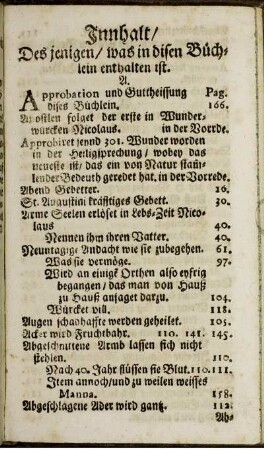 Innhalt/
Des jenigen/ was in disen Büch-
lein enthalten ist.
A.
Approbation und Guttheissung Pag.
dises Büchlein. 166.
Apostlen folget der erste in Wunder-
würcken Nicolaus. in der Vorrde.
Approbiret seynd 301. Wunder worden
in der Heiligsprechung/ wobey das
neueste ist/ das ein von Natur stam-
lender Bedeuth geredet hat. in der Vorrede.
Abend Gebetter. 16.
St. Augustini kräfftiges Gebett. 30.
Arme Seelen erlöset in Lebs-Zeit Nico-
laus 40.
Nennen ihm ihren Vatter. 40.
Neuntägige Andacht wie sie zubegehen. 61.
Was sie vermöge. 97.
Wird an einige Orthen also eyfrig
begangen/ das man von Hauß
zu Hauß ansaget darzu. 104.
Würcket vill. 118.
Augen schadhaffte werden geheilet. 105.
Acker wird Fruchtbahr. 110. 141. 145.
Abgeschnittene Armb lassen sich nicht
stehlen. 110.
Nach 40. Jahr flüssen sie Blut. 110. 111.
Item annoch/ und zu weilen weisses
Manna. 158.
Abgeschlagene Ader wird gantz. 112.
Ab-